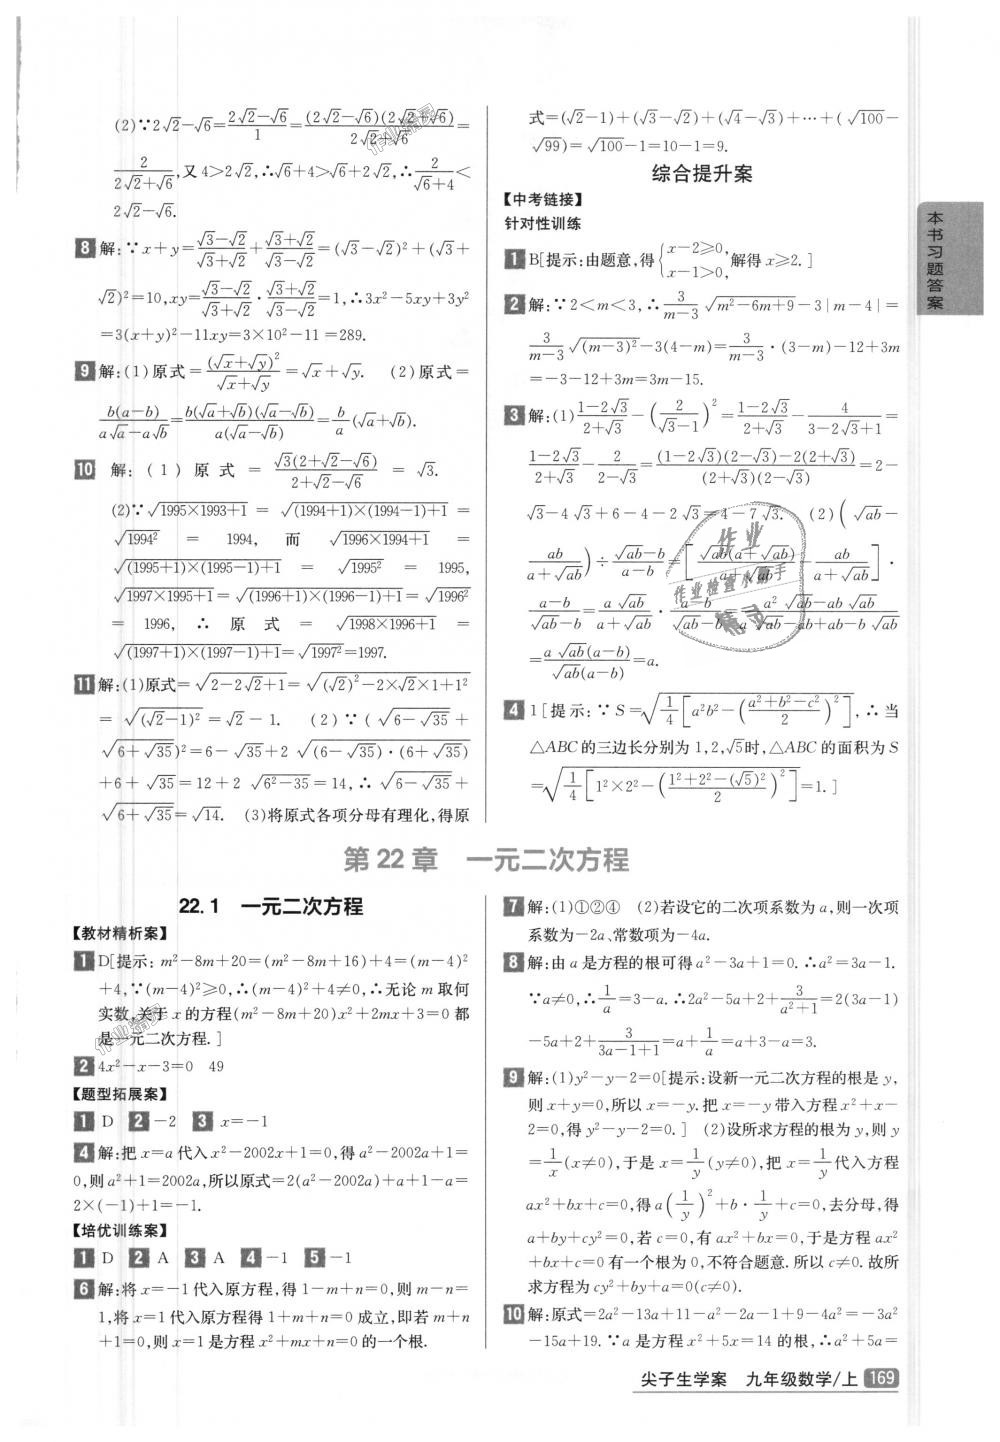 (2)∵2√2-√6=(2√2-√6)/1=(2√2-√6)(2√2+√6)/(2√2+√6)=
2/(2√2+√6),又4>2√2,∴√6+4>√6+2√2,∴2/(√6+4)<
2√2-√6.
8 解:∵x+y=(√3-√2)/(√3+√2)+(√3+√2)/(√3-√2)=(√3-√2)²+(√3+
√2)²=10,xy=(√3-√2)/(√3+√2)·(√3+√2)/(√3-√2)=1,∴3x²-5xy+3y²
=3(x+y)²-11xy=3×10²-11=289.
9 解:(1)原式=(√x+√y)²/(√x+√y)=√x+√y. (2)原式=
b(a-b)/(a√a-a√b)=b(√a+√b)(√a-√b)/a(√a-√b)=b/a(√a+√b).
10 解:(1)原式=√3(2+√2-√6)/(2+√2-√6)=√3.
(2)∵√(1995×1993+1)=√((1994+1)×(1994-1)+1)=
√(1994²)=1994,而√(1996×1994+1)=
√((1995+1)×(1995-1)+1)=√(1995²)=1995,
√(1997×1995+1)=√((1996+1)×(1996-1)+1)=√(1996²)
=1996,∴原式=√(1998×1996+1)=
√((1997+1)×(1997-1)+1)=√(1997²)=1997.
11 解:(1)原式=√(2-2√2+1)=√((√2)²-2×√2×1+1²)
=√((√2-1)²)=√2-1. (2)∵(√(6-√35)+
√(6+√35))²=6-√35+2√((6-√35)·(6+√35))
+6+√35=12+2√(6²-35)=14,∴√(6-√35)+
√(6+√35)=√14. (3)将原式各项分母有理化,得原
式=(√2-1)+(√3-√2)+(√4-√3)+…+(√100-
√99)=√100-1=10-1=9.
综合提升案
【中考链接】
针对性训练
1 B[提示:由题意,得{x-2≥0, x-1>0,解得x≥2.]
2 解:∵2<m<3,∴3/(m-3)√(m²-6m+9)-3|m-4|=
3/(m-3)√((m-3)²)-3(4-m)=3/(m-3)·(3-m)-12+3m
=-3-12+3m=3m-15.
3 解:(1)(1-2√3)/(2+√3)-(2/(√3-1))²=(1-2√3)/(2+√3)-4/(3-2√3+1)=
(1-2√3)/(2+√3)-2/(2-√3)=((1-2√3)(2-√3)-2(2+√3))/((2+√3)(2-√3))=2-
√3-4√3+6-4-2√3=4-7√3. (2)(√ab-
ab/(a+√ab))÷(√ab-b)/(a-b)=[√ab(a+√ab)/(a+√ab)-ab/(a+√ab)]·
(a-b)/(√ab-b)=a√ab/(a+√ab)·(a-b)/(√ab-b)=(a²√ab-ab√ab)/(a√ab-ab+ab-b√ab)
=a√ab(a-b)/√ab(a-b)=a.
4 1[提示:∵S=√(1/4[a²b²-((a²+b²-c²)/2)²]),∴当
△ABC的三边长分别为1,2,√5时,△ABC的面积为S
=√(1/4[1²×2²-((1²+2²-(√5)²)/2)²])=1.]
本书习题答案
第22章 一元二次方程
22.1 一元二次方程
【教材精析案】
1 D[提示:m²-8m+20=(m²-8m+16)+4=(m-4)²
+4,∵(m-4)²≥0,∴(m-4)²+4≠0,∴无论m取何
实数,关于x的方程(m²-8m+20)x²+2mx+3=0都
是一元二次方程.]
2 4x²-x-3=0 49
【题型拓展案】
1 D 2 -2 3 x=-1
4 解:把x=a代入x²-2002x+1=0,得a²-2002a+1=
0,则a²+1=2002a,所以原式=2(a²-2002a)+a+1-a=
2×(-1)+1=-1.
【培优训练案】
1 D 2 A 3 A 4 -1 5 -1
6 解:将x=-1代入原方程,得1-m+n=0,则m-n=
1,将x=1代入原方程得1+m+n=0成立,即若m+n
+1=0,则x=1是方程x²+mx+n=0的一个根.
7 解:(1)①②④ (2)若设它的二次项系数为a,则一次项
系数为-2a、常数项为-4a.
8 解:由a是方程的根可得a²-3a+1=0.∴a²=3a-1.
∵a≠0,∴1/a=3-a.∴2a²-5a+2+3/(a²+1)=2(3a-1)
-5a+2+3/(3a-1+1)=a+1/a=a+3-a=3.
9 解:(1)y²-y-2=0[提示:设新一元二次方程的根是y,
则x+y=0,所以x=-y.把x=-y带入方程x²+x-
2=0,得y²-y-2=0.] (2)设所求方程的根为y,则y
=1/x(x≠0),于是x=1/y(y≠0),把x=1/y代入方程
ax²+bx+c=0,得a(1/y)²+b·1/y+c=0,去分母,得
a+by+cy²=0,若c=0,有ax²+bx=0,于是方程ax²
+bx+c=0有一个根为0,不符合题意.所以c≠0.故所
求方程为cy²+by+a=0(c≠0).
10 解:原式=2a²-13a+11-a²-2a-1+9-4a²=-3a²
-15a+19.∵a是方程x²+5x=14的根,∴a²+5a=
尖子生学案 九年级数学/上 169
作业
作业检查小助手
精灵
作业精灵
作业精灵